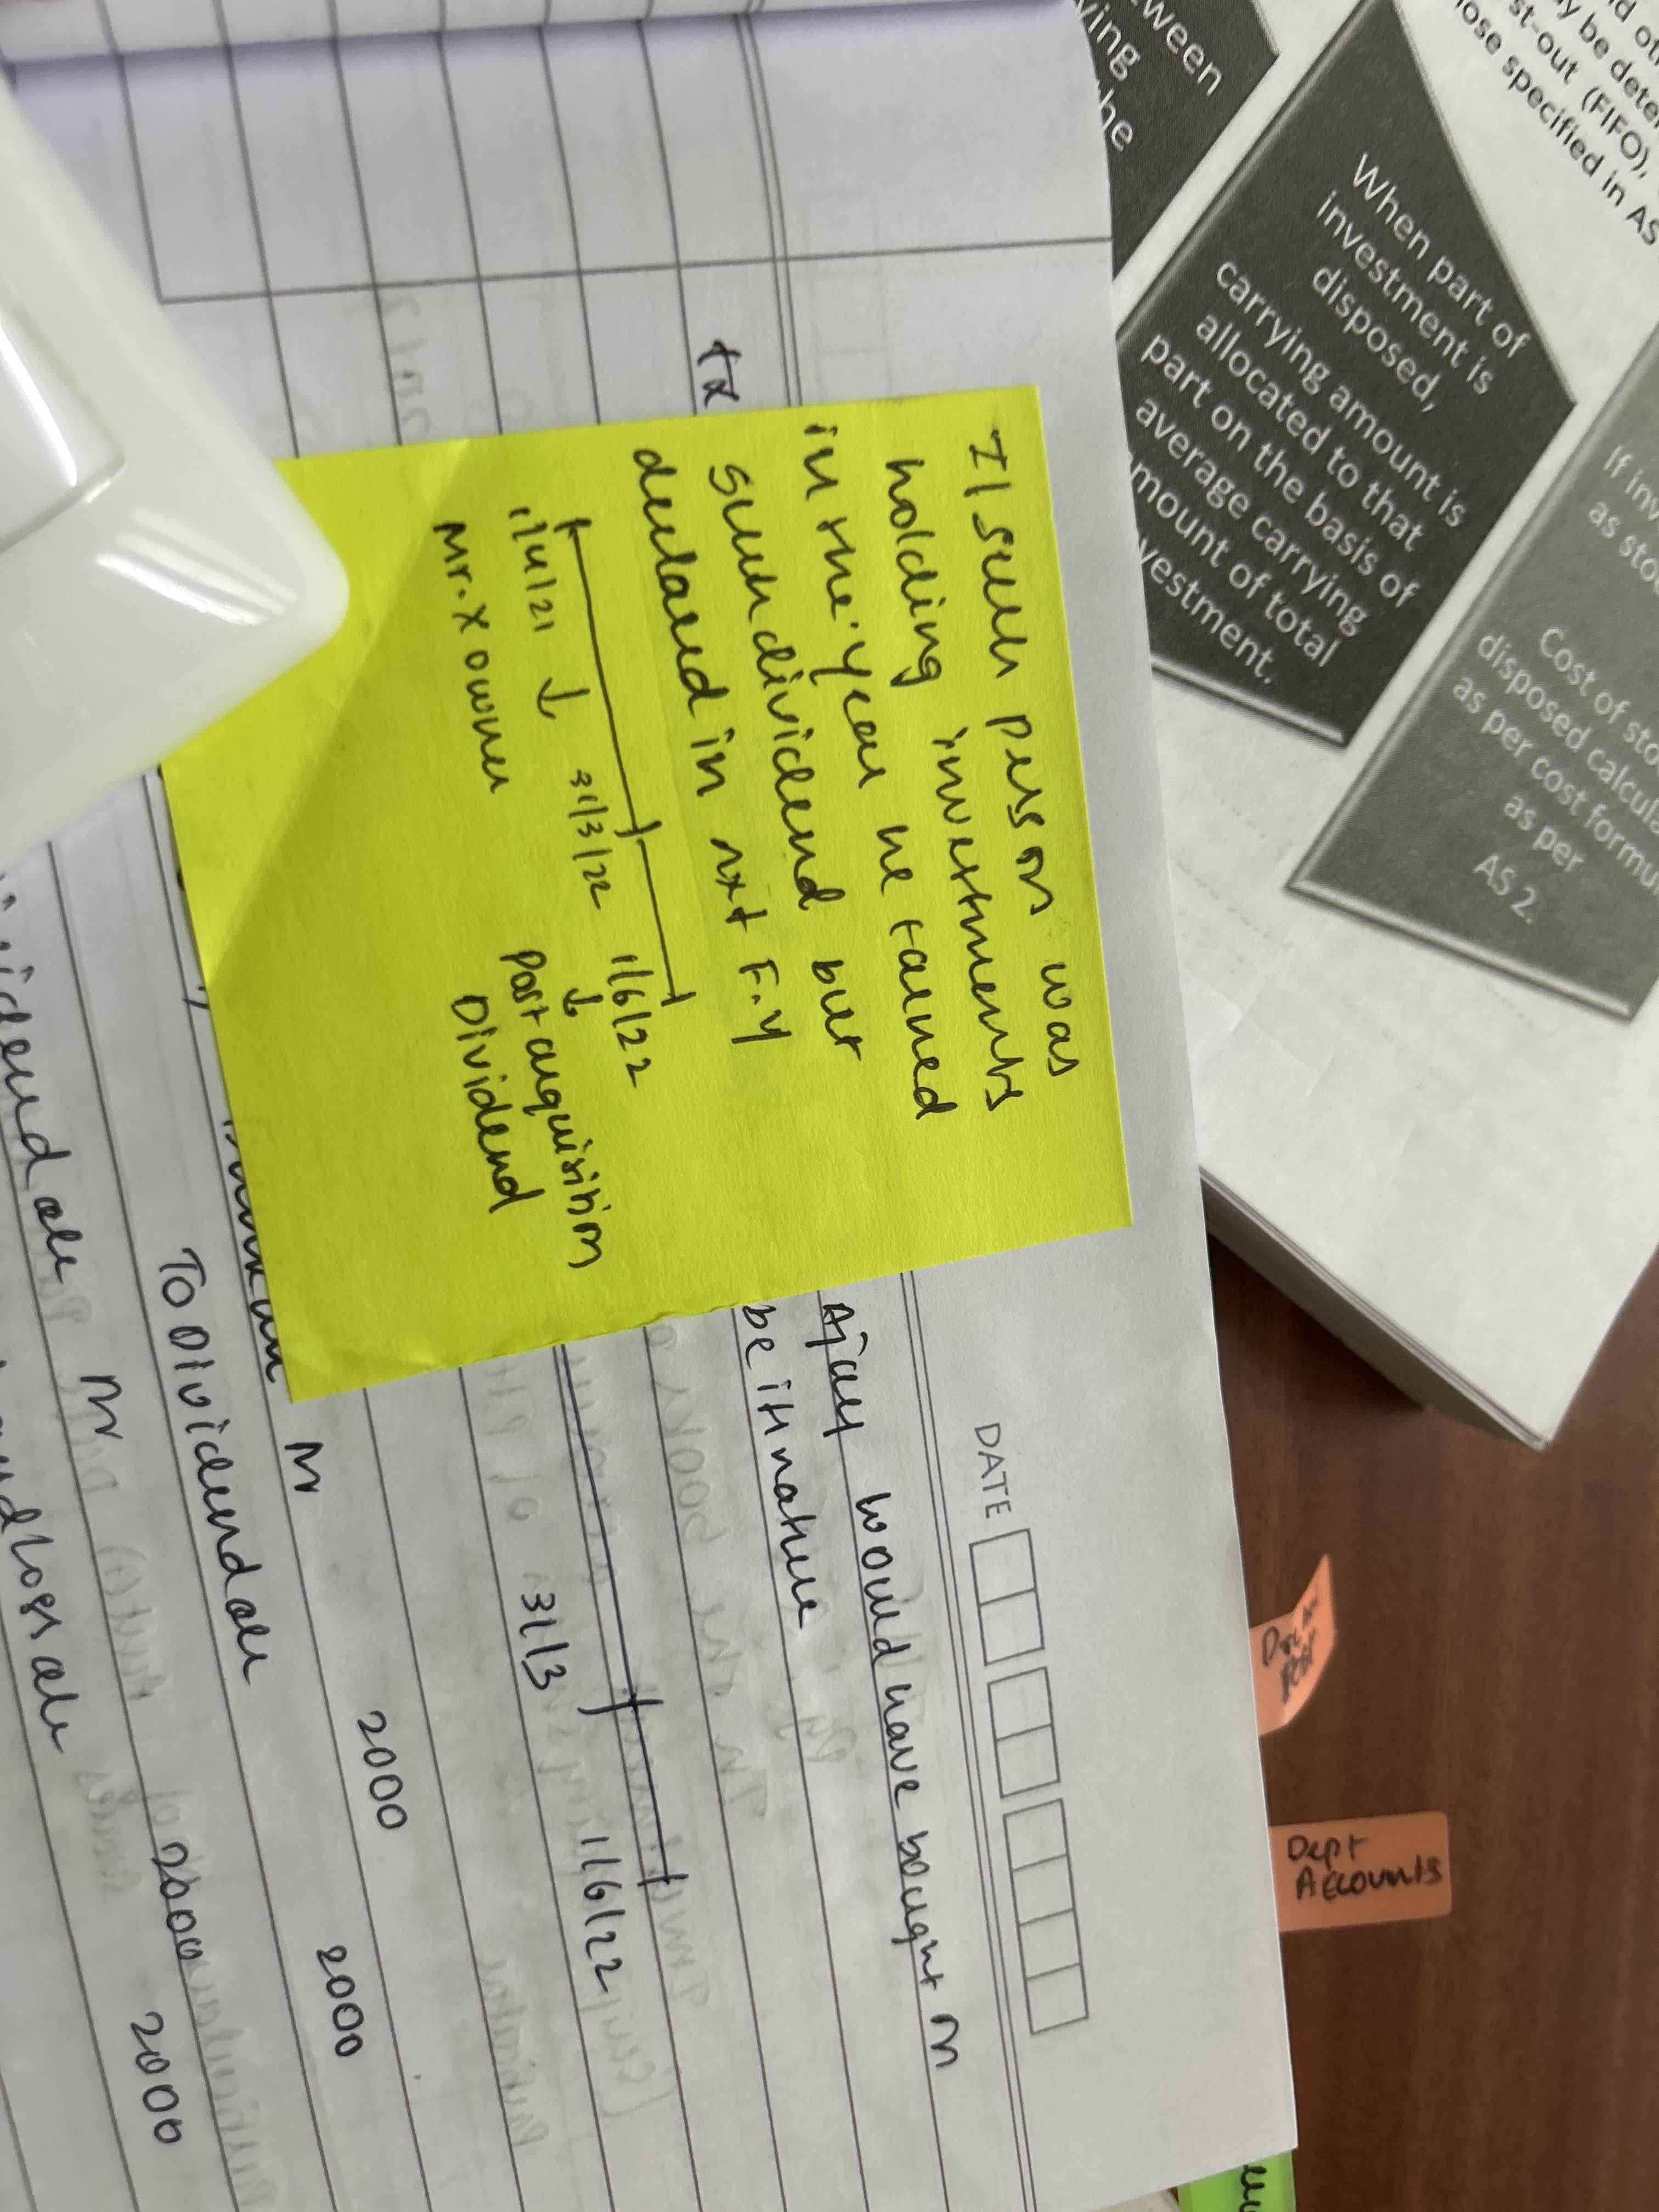 If such person was
holding investments
in the year he earned
such dividend but
declared in nxt F.Y
1/4/21 ↓ 31/3/22 1/6/22
Mr. X owner
↓
Post acquisition
Dividend
DATE
Ajay would have bought in
be in nature
31/3 1/6/22
2000
Dr
To Dividend a/c 2000
Dividend a/c Dr 2000
and loss a/c 2000
ween
ying
he
When part of
investment is
disposed,
carrying amount is
allocated to that
part on the basis of
average carrying
mount of total
vestment.
st-out (FIFO),
ose specified in AS
If inv
as sto
Cost of sto
disposed calcula
as per cost formu
as per
AS 2.
Dept
Accounts